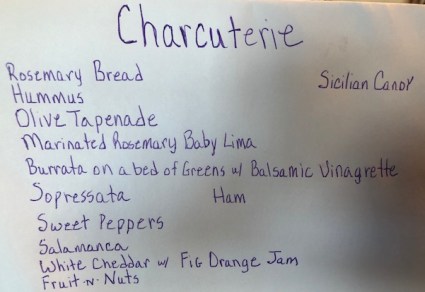 Charcuterie
Rosemary Bread
Sicilian Candy
Hummus
Olive Tapenade
Marinated Rosemary Baby Lima
Burrata on a bed of Greens w/ Balsamic Vinagrette
Sopressata Ham
Sweet Peppers
Salamanca
White Cheddar w/ Fig Orange Jam
Fruit-n-Nuts